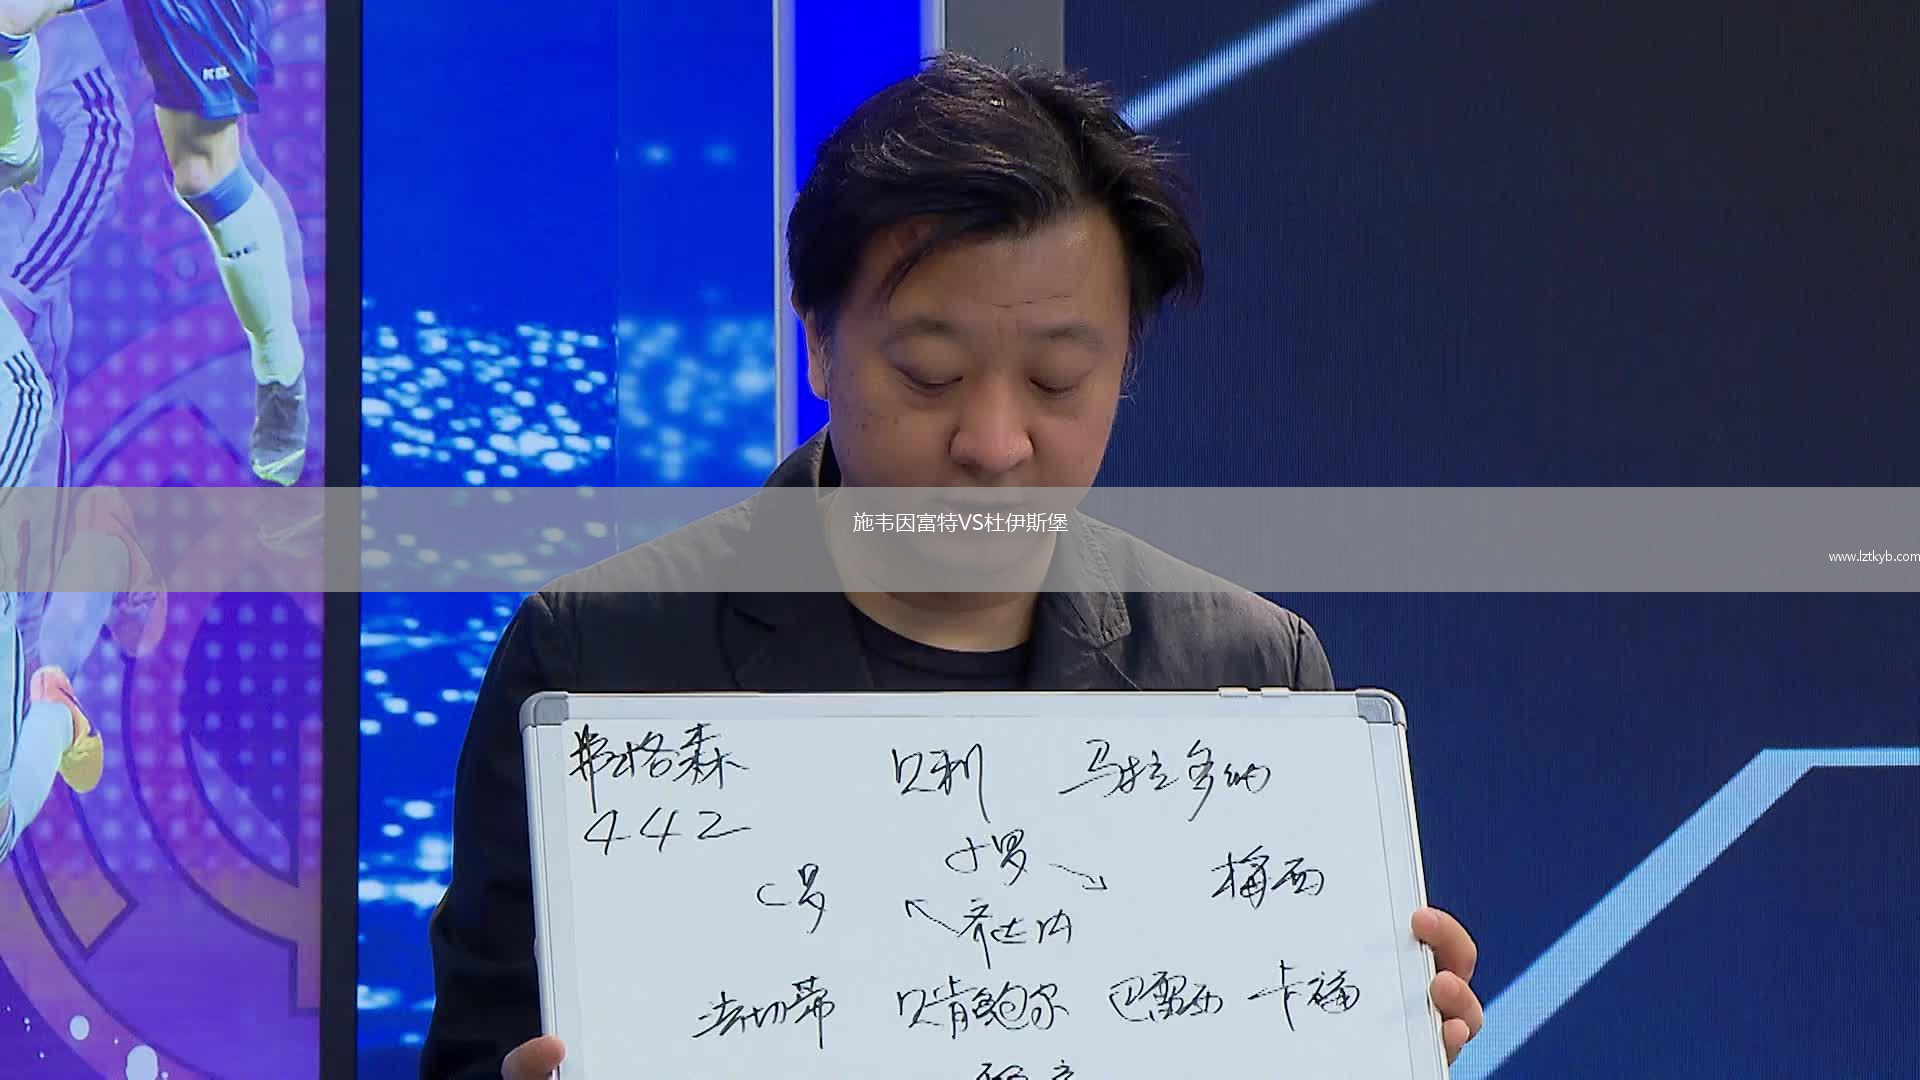 KELME
施韦因富特VS杜伊斯堡
www.lztkyb.com
弗格森 贝利 马拉多纳
442
小罗
C罗 梅西
齐达内
法切蒂 贝肯鲍尔 巴雷西 卡福